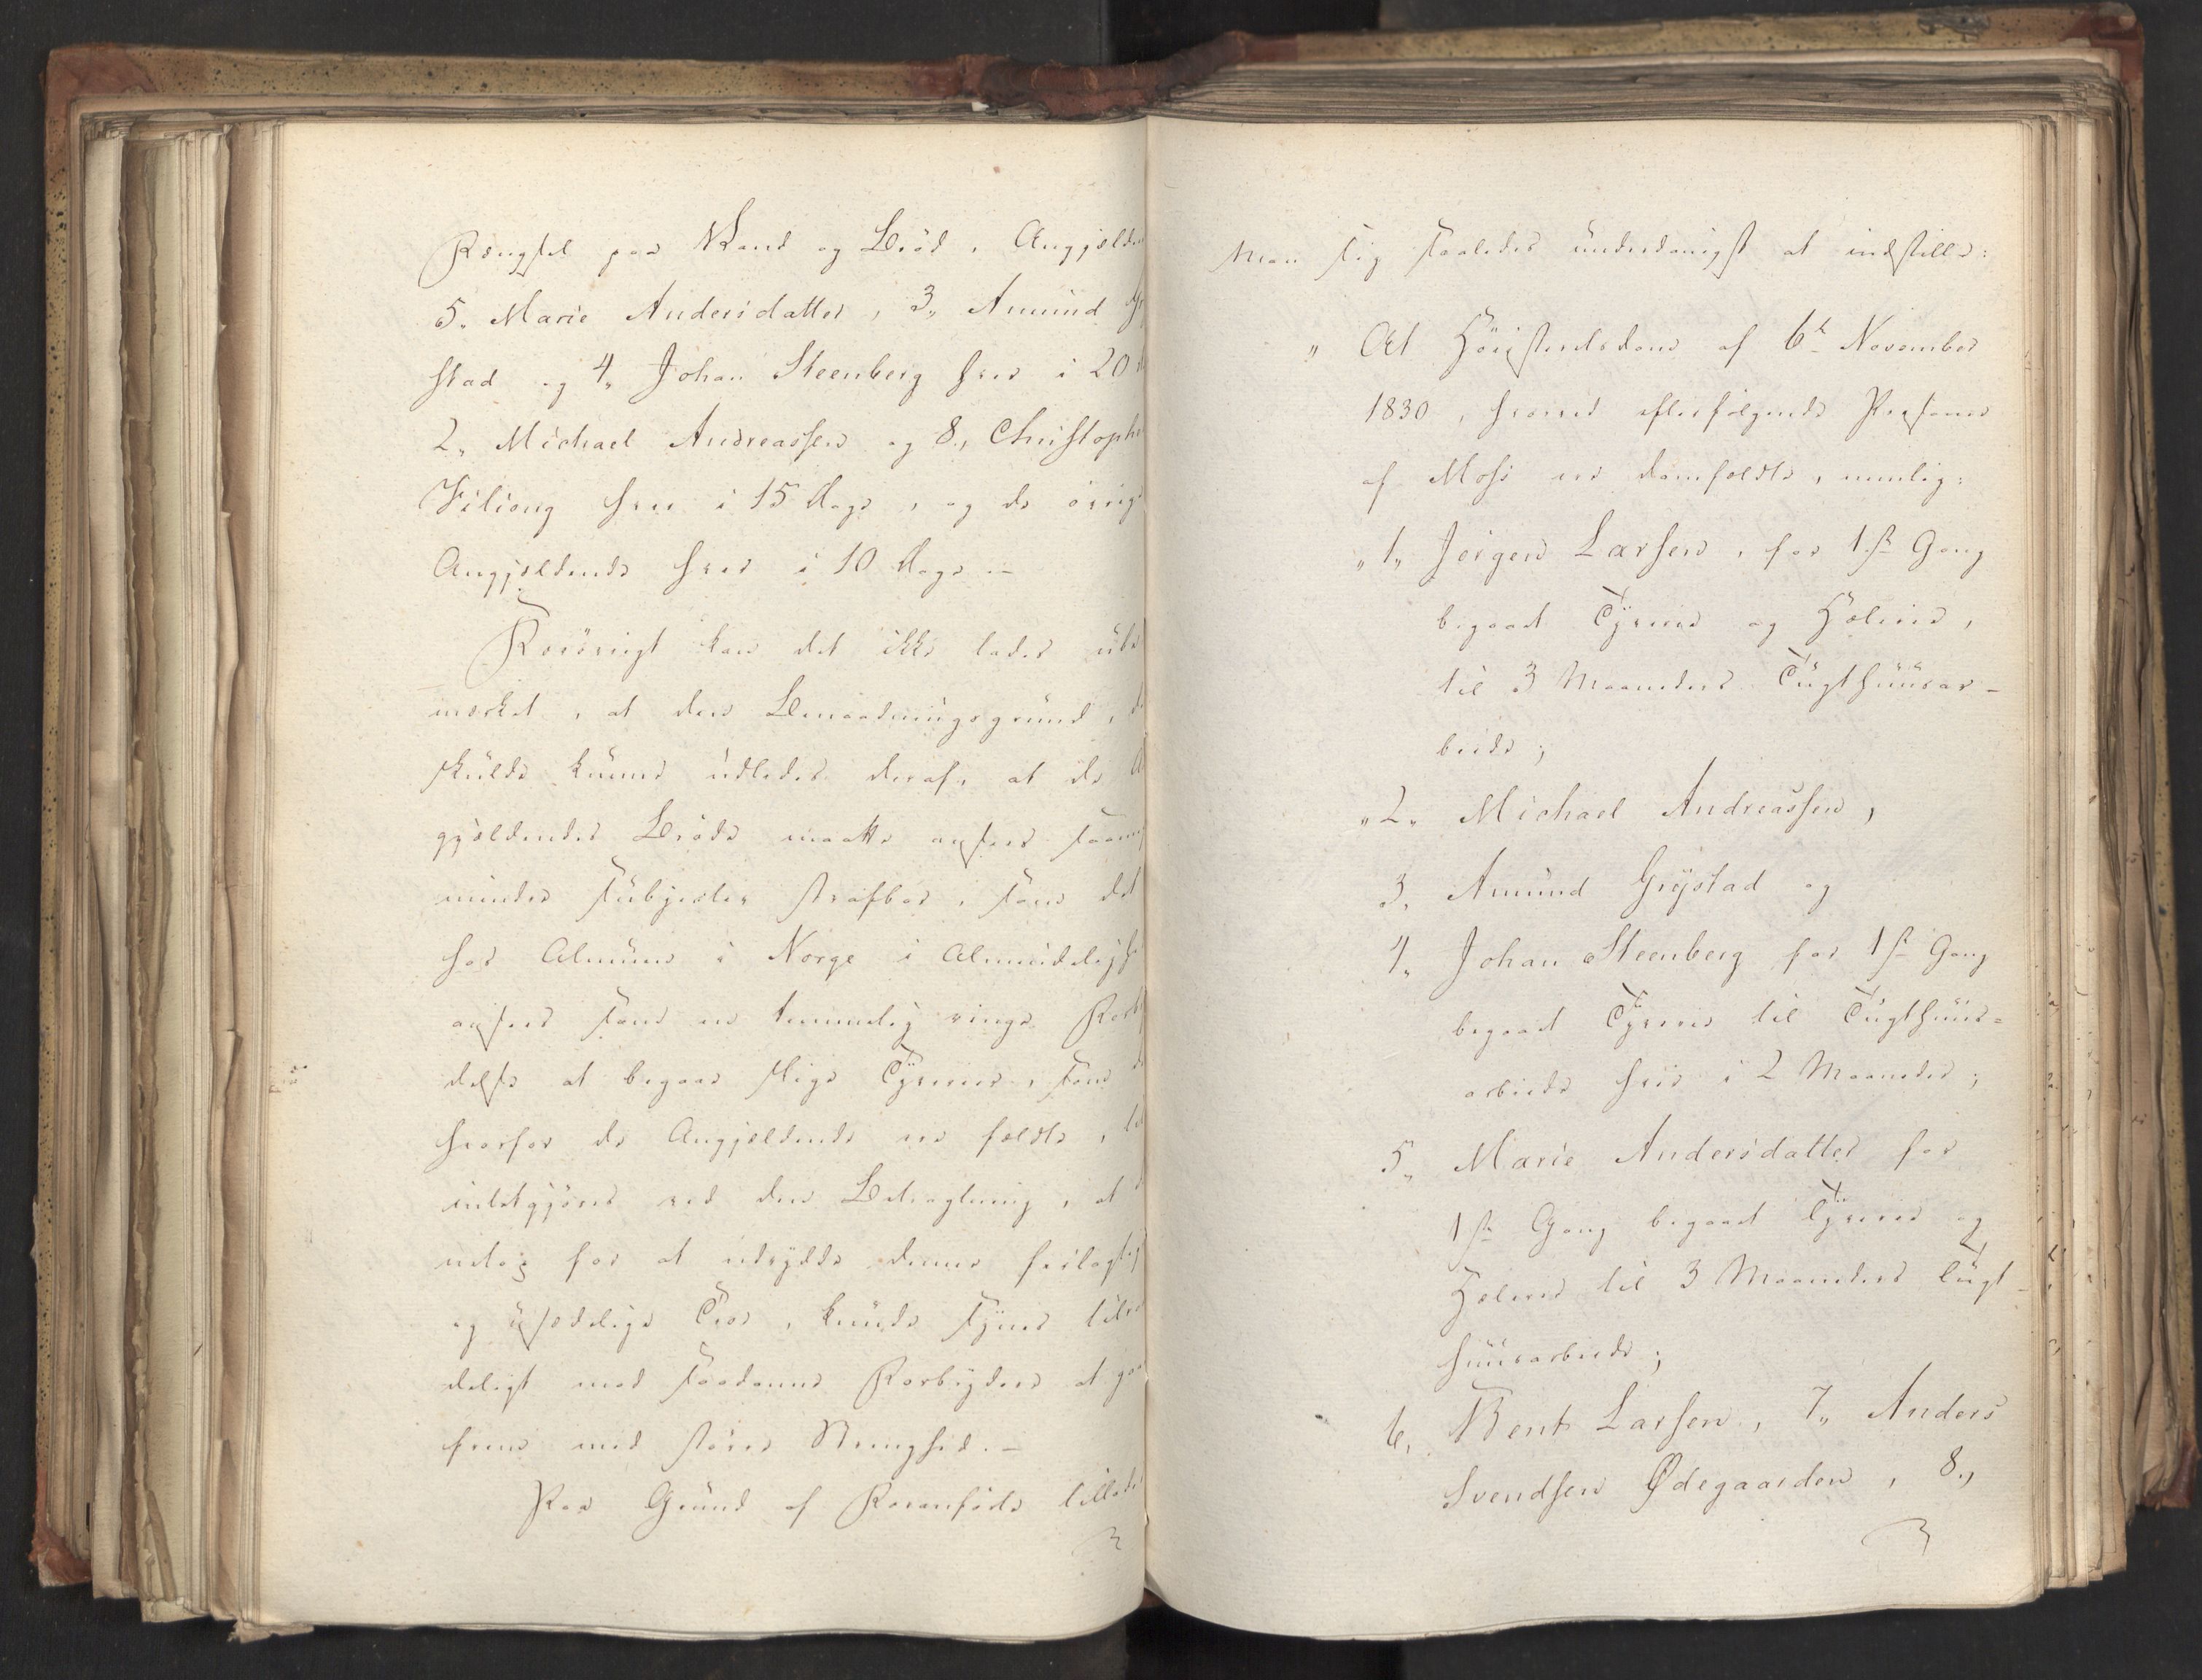 Fængsel paa Vand og Bröd, Angjældende
5, Marie Andersdatter, 3, Amund Gry
stad og 4, Johan Steenberg hver i 20
2, Michael Andreassen og 8, Christopher
hver i 15 Dage, og de övrige
Angjældende hver i 10 Dage.—
Forövrigt kan det ikke lades ube
mærket, at den Benaadningsgrund, der
skulde kunne udledes deraf, at de An
gjældendes Bröde maatte ansees saameget
mindre subjectiv strafbar, som det
hos Almuen i Norge i Almindelighed
ansees som en temmelig ringe Forbry
delse at begaae slige Tyverier, som
hvorfor de Angjældende ere fældte, til
intetgjöres ved den Betragtning, at
netop for at udrydde denne feilagtige
og usædelige Troe, kunde synes tilraa
deligt mod saadanne Forbrydere at gaae
frem med större Strenghed.—
Paa Grund af Foranförte tillader
man sig saaledes underdanigst at indstille:
„ At Höiesteretsdom af 6te November
1830, hvorved efterfölgende Personer
af Moss ere domfældte, nemlig:
„ 1, Jörgen Larsen, for 1ste Gang
begaaet Tyverie og Hælerie,
til 3 Maaneders Tugthuusar-
beide;
„ 2, Michael Andreassen,
3, Amund Grystad og
4, Johan Steenberg for 1ste Gang
begaaet Tyverie til Tugthuus-
arbeide hver i 2 Maaneder;
5, Marie Andersdatter for
1ste Gang begaaet Tyverie og
Hælerie til 3 Maaneders Tugt-
huusarbeide;
6, Bent Larsen, 7, Anders
Svendsen Ödegaarden, 8,